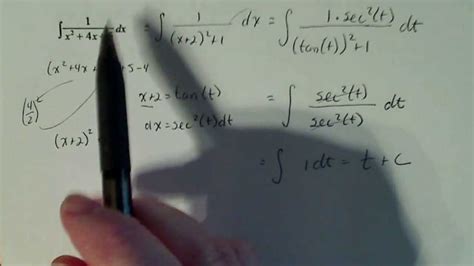 ∫ 1/(x² + 4x dx = ∫ 1/((x+2)²+1) dx = ∫ 1·sec²(t)/((tan(t))²+1) dt
(x²+4x +5-4
(4/2)² x+2 = tan(t) = ∫ sec²(t)/sec²(t) dt
(x+2)² dx = sec²(t)dt
= ∫ 1 dt = t + C